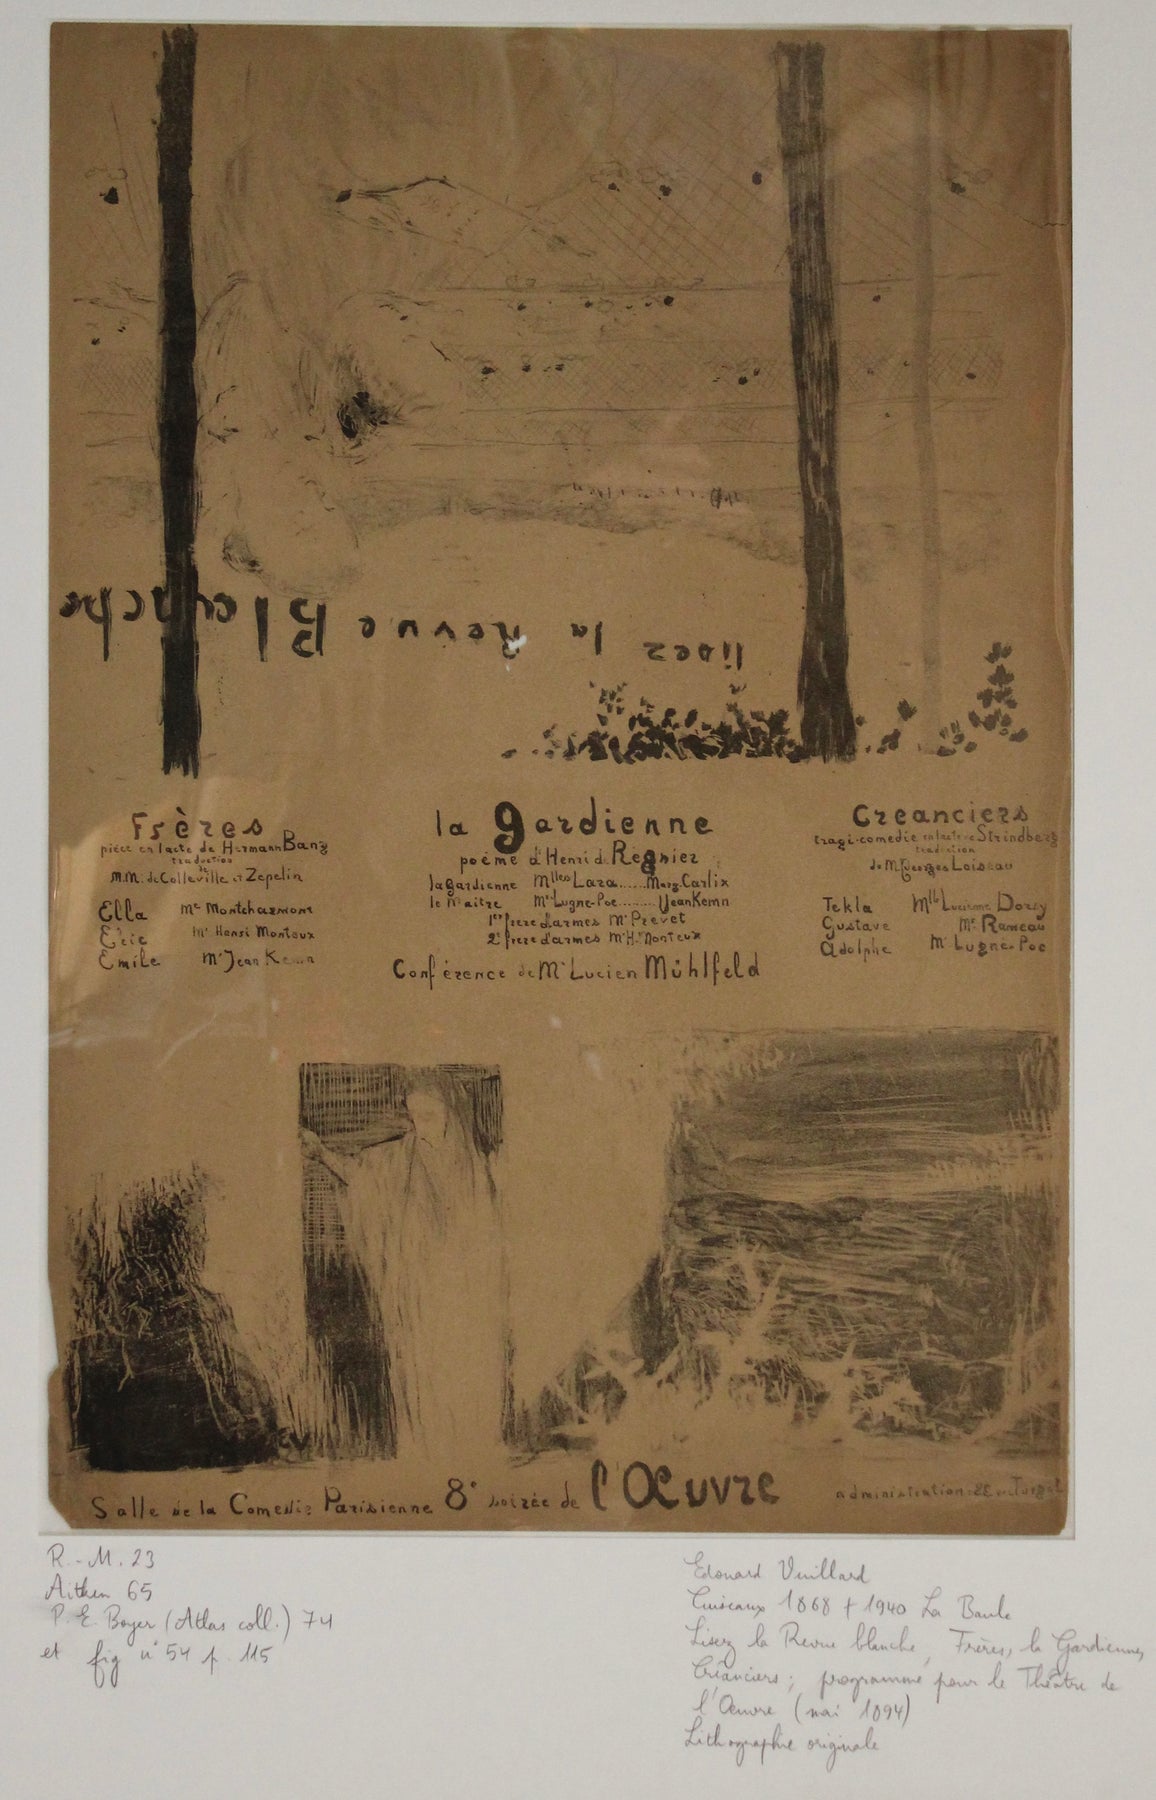 lisez la Revue Blanche
Frères
pièce en 1 acte de Hermann Bang
traduction
de
M.M. de Colleville et Zepelin
Ella Me Montcharmont
Eric Mr Henri Monteux
Emile Mr Jean Kemm
la gardienne
poème d'Henri de Regnier
la gardienne Mlles Lara......Marg. Carlix
le Maitre Mrs Lugne-Poe.........Jean Kemm
1er frere d'armes Mr Prevet
2e frere d'armes Mr H. Monteux
Conférence de Mr Lucien Mühlfeld
Creanciers
tragi-comedie en 1 acte de Strindberg
traduction
de M. Georges Loiseau
Tekla Mlle Lucienne Dorsy
Gustave Mr Rameau
Adolphe Mr Lugne-Poe
Salle de la Comedie Parisienne 8e soirée de l'Œuvre
administration: 22 rue Turgot
R.-M. 23
Aitken 65
P. E. Boyer (Atlas coll.) 74
et fig n° 54 p. 115
Edouard Vuillard
Cuiseaux 1868 † 1940 La Baule
Lisez la Revue blanche, Frères, la Gardienne,
Créanciers ; programme pour le Théâtre de
l'Œuvre (mai 1894)
Lithographie originale